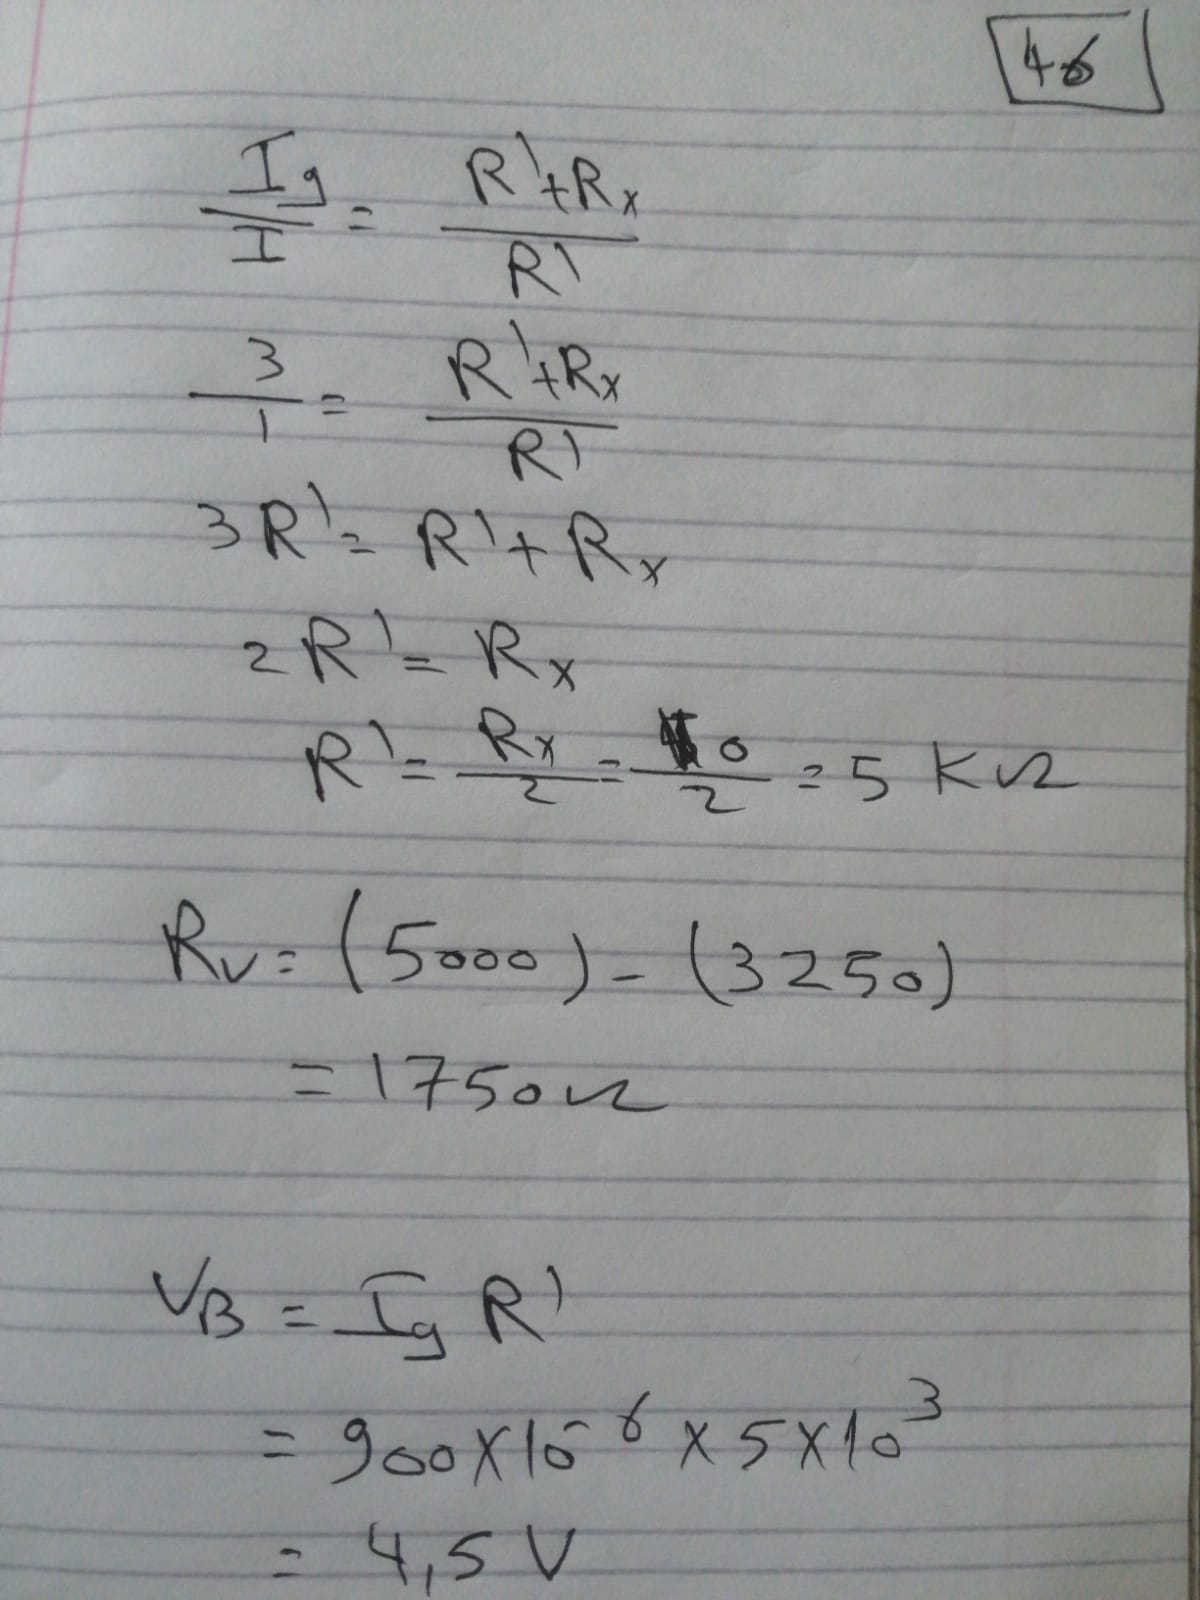 46
I_g / I = R'+R_x / R'
3 / 1 = R'+R_x / R'
3R' = R' + R_x
2R' = R_x
R' = R_x / 2 = 10 / 2 = 5 KΩ
R_v = (5000) - (3250)
= 1750Ω
V_B = I_g R'
= 900 X 10^-6 X 5 X 10^3
= 4,5 V